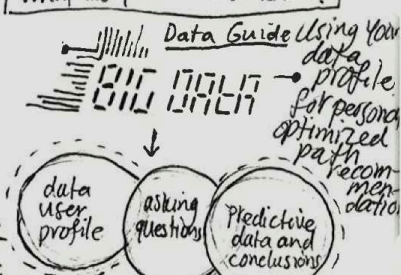 Data Guide
Using your
data
profile
for personal
optimized
path
recom-
men-
dation
BIG DATA
data
user
profile
asking
questions
Predictive
data and
conclusions